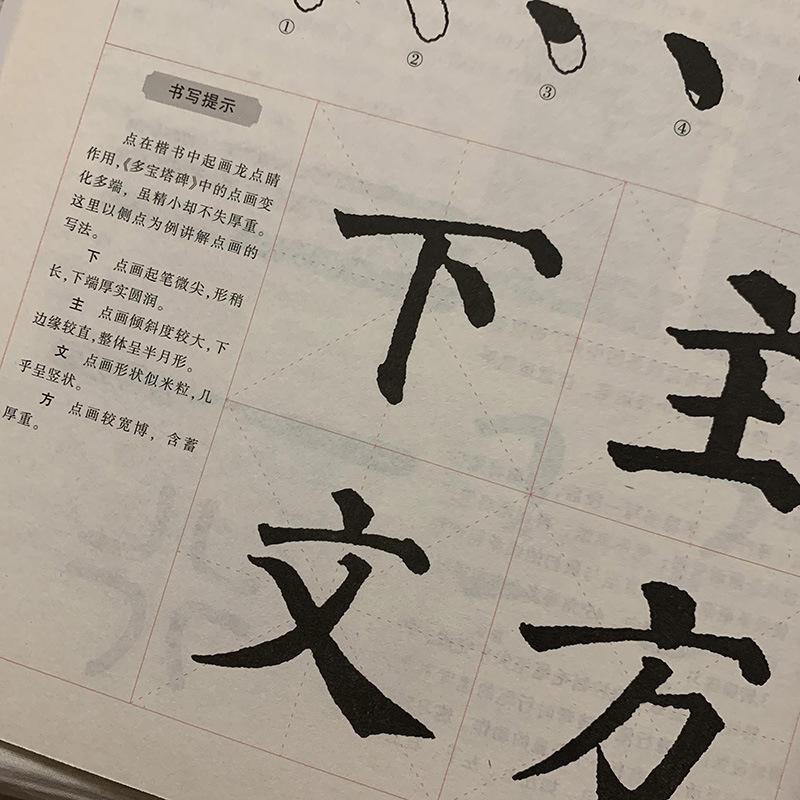 ① ② ③ ④
书写提示
点在楷书中起画龙点睛
作用,《多宝塔碑》中的点画变
化多端，虽精小却不失厚重。
这里以侧点为例讲解点画的
写法。
下 点画起笔微尖,形稍
长,下端厚实圆润。
主 点画倾斜度较大,下
边缘较直,整体呈半月形。
文 点画形状似米粒,几
乎呈竖状。
方 点画较宽博，含蓄
厚重。
下 主
文 方